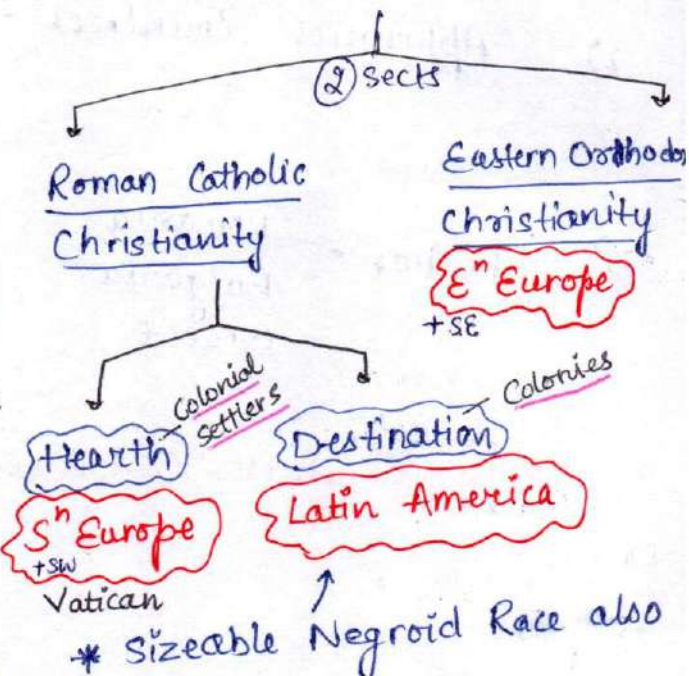 ② Sects
Roman Catholic
Christianity
Eastern Orthodox
Christianity
Eⁿ Europe
+ SE
Hearth
Colonial
Settlers
Sⁿ Europe
+SW
Vatican
Destination
Colonies
Latin America
* Sizeable Negroid Race also